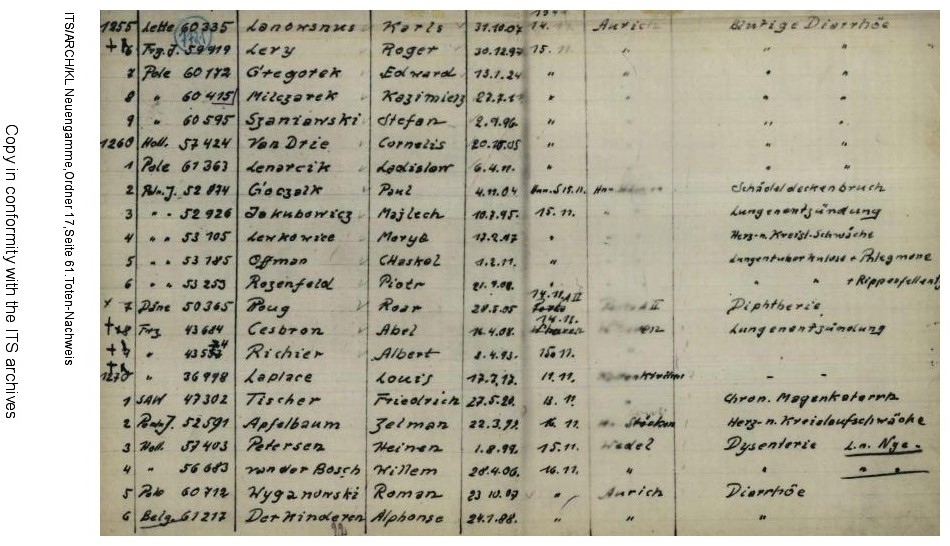 ITS/ARCH/KL Neuengamme, Ordner 17, Seite 61. Toten-Nachweis
Copy in conformity with the ITS archives
1255 Lette 60335 Lanowsnus Karls 31.10.07 14. Aurich Blutige Diarrhöe
+ 6 Frz.J. 59919 Levy Roger 30.12.97 15.11. " " "
7 Pole 60172 Gregorek Edward 13.1.24 " " " "
8 " 60415 Milczarek Kazimierz " " " "
9 " 60595 Szaniawski Stefan 2.9.96. " " " "
1260 Holl. 57424 Van Drie Cornelis " " " "
1 Pole 61363 Lenarcik Ladislaw 6.4.11. " " " "
2 Poln.J. 52874 Goczalk Paul 4.11.04 15.11. Schädeldeckenbruch
3 " " 52926 Jakubowicz Majlech 10.7.95. 15.11. Lungenentzündung
4 " " 53105 Lewkowice Maryą " Herz-u. Kreisl-Schwäche
5 " " 53185 Offman CHaskel 1.2.11. " Lungentuberkulose + Phlegmone
6 " " 53253 Rozenfeld Piotr 21.9.08. " " + Rippenfellentz
x 7 Däne 50365 Poug Roar 28.5.05 14.11. A II Diphtherie
+ 8 Frz 43684 Cesbron Abel 14.11. Lungenentzündung
+ 9 " Richier Albert 8.4.93. 15.11.
+ 1270 " 36998 Laplace Louis 17.7.17. 11.11. - -
1 SAW 47302 Tischer Friedrich 27.5.20. 13.11. Chron. Magenkatarrh
2 Poln.J. 52591 Apfelbaum Zelman 16.11. Stöcken Herz-u. Kreislaufschwäche
3 Holl. 57403 Petersen Heinen 1.8.99. 15.11. Wedel Dysenterie L.n. Nge.
4 " 56683 van der Bosch Willem 28.4.06. 16.11. " " " "
5 Pole 60712 Wyganowski Roman 23.10.07 " Aurich Diarrhöe
6 Belg. 61217 Der Kinderen Alphonse 24.1.88. " " "